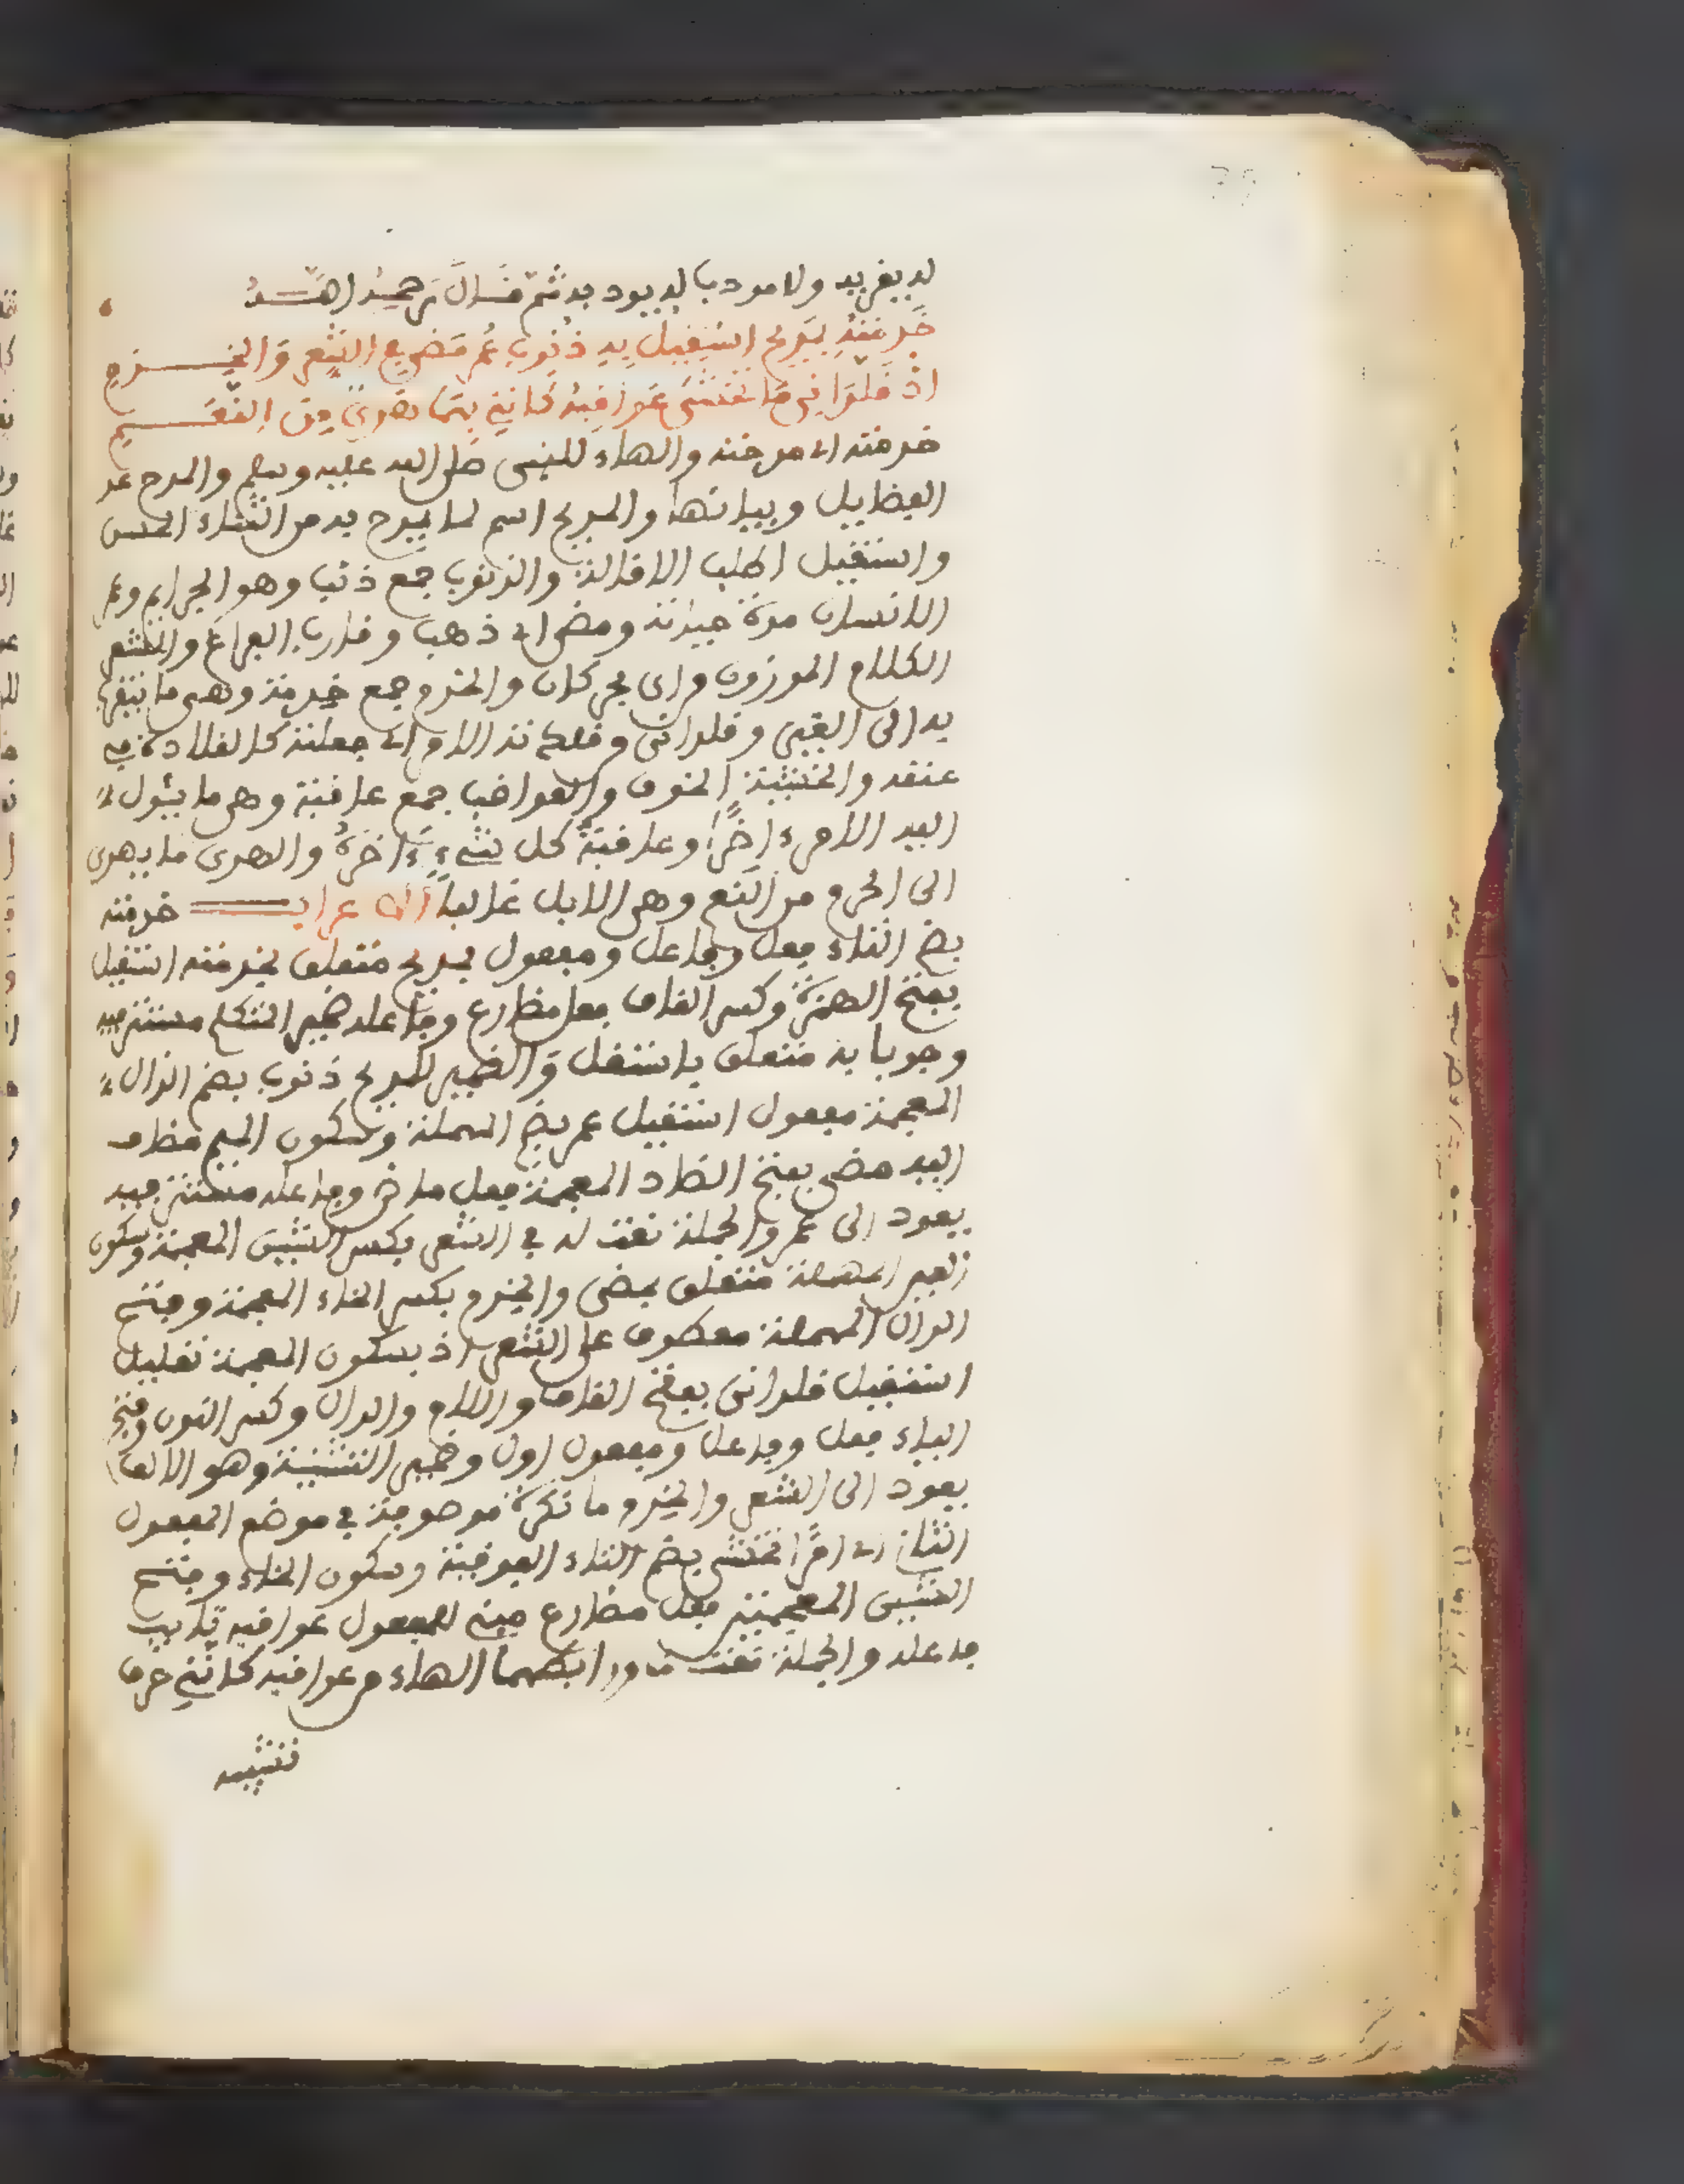 له بغريه ولا مودبا له يود به ثم قَالَ رَحِمَهُ اللَّهُ
خَدَمْتُهُ بِمَدِيحٍ اسْتَقِيلُ بِهِ ذُنُوبَ عُمْرٍ مَضَى فِي الشِّعْرِ وَالْخِدَمِ
اذْ قَلَّدَانِيَ مَا تُخْشَى عَوَاقِبُهُ كَأَنَّنِي بِهِمَا هَدْيٌ مِنَ النَّعَمِ
خدمته اى مدحته والهاء للنبى صلى الله عليه وسلم والمدح عد
الفضايل وبيانها والمديح اسم لما يمدح به من الثناء الحسن
واستقيل اطلب الاقالة والذنوب جمع ذنب وهو الجرايم وعمر
الانسان مدة حياته ومضى اى ذهب وقارب الفراغ والشعر
الكلام الموزون والخدم جمع خدمة وهى ما يتقرب
به الى الغير وقلدانى وقلدته الامر اى جعلته كالقلادة فى
عنقه والخشية الخوف والعواقب جمع عاقبة وهى ما يئول
اليه الامر ءاخرًا وعاقبة كل شىء ءاخره والهدى ما يهدى
الى الحرم من النعم وهى الابل غالبا الاعراب خدمته
بضم التاء فعل وفاعل ومفعول بمديح متعلق بخدمته استقيل
بفتح الهمزة وكسر القاف فعل مضارع وفاعله ضمير المتكلم مستتر فيه
وجوبا به متعلق باستقل والضمير للمديح ذنوب بضم الذال
المعجمة مفعول استقيل عمر بضم المهملة وسكون الميم مضاف
اليه مضى بفتح الضاد المعجمة فعل ماض وفاعله مستتر فيه
يعود الى عمر والجملة نعت له فى الشعر بكسر الشين المعجمة وسكون
العين المهملة متعلق بمضى والخدم بكسر الخاء المعجمة وفتح
الدال المهملة معطوف على الشعر اذ بسكون المعجمة تعليل
استقيل قلدانى بفتح القاف واللام والدال وكسر النون وفتح
الياء فعل وفاعل ومفعول اول وضمير التثنية وهو الالف
يعود الى الشعر والخدم ما نكرة موصوفة فى موضع المفعول
الثانى اى امرًا تخشى بضم التاء الفوقية وسكون الخاء وفتح
الشين المعجمتين فعل مضارع مبنى للمفعول عواقبه نايب
فاعله والجملة نعت ما ورابطهما الهاء من عواقبه كاننى حرف
تشبيه